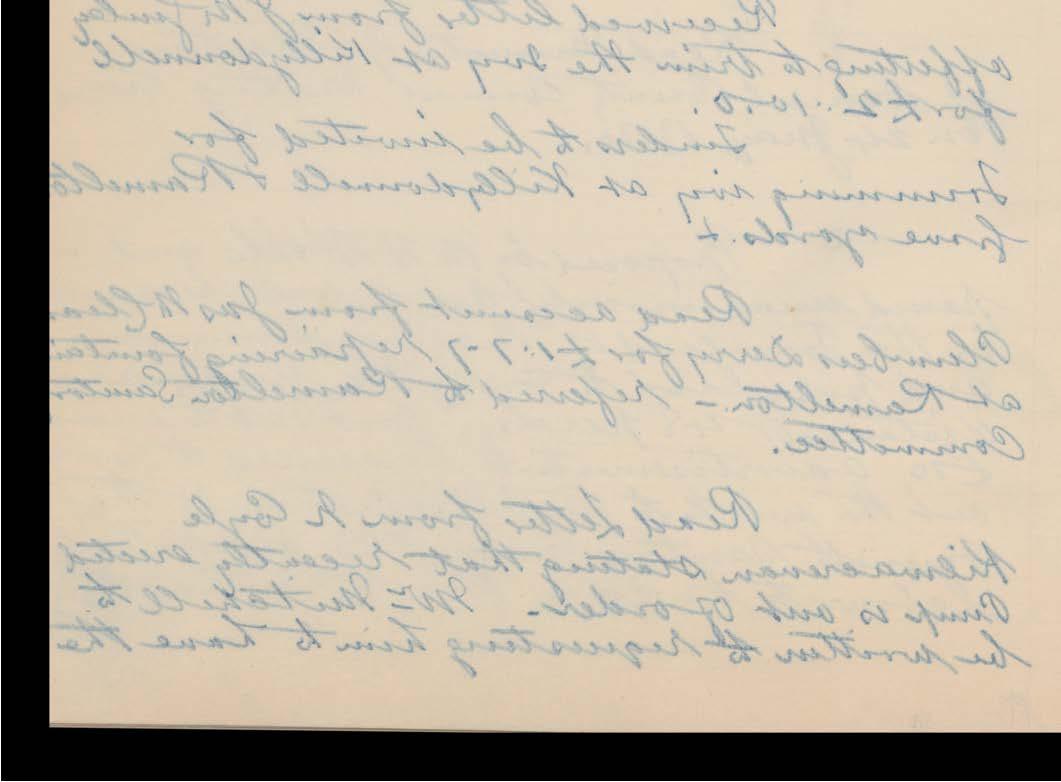 Received letter from J McGinley
offering to trim the Ivy at Killydonnell
for £2:10:0.
Tenders to be invited for
Trimming ivy at Killydonnell & Ramelton
Grave yards.
Read account from Jas McClean
Plumber Derry for £1:7-7 repairing fountain
at Ramelton - referred to Ramelton
Committee.
Read letter from N Coyle
Kilmacrenan stating that recently erected
Pump is out of order - Mr Mitchell to
be written to requesting him to have the